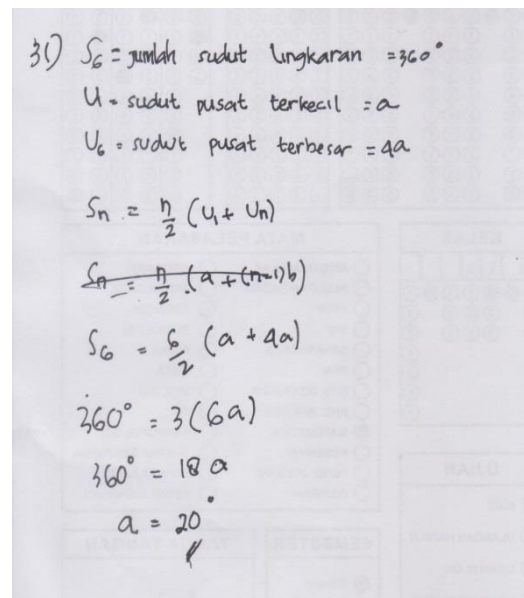 31) S₆ = jumlah sudut lingkaran = 360°
U = sudut pusat terkecil = a
U₆ = sudut pusat terbesar = 4a
Sn = n/2 (U₁ + Un)
Sn = n/2 (a + (n-1)b)
S₆ = 6/2 (a + 4a)
360° = 3(6a)
360° = 18 a
a = 20°